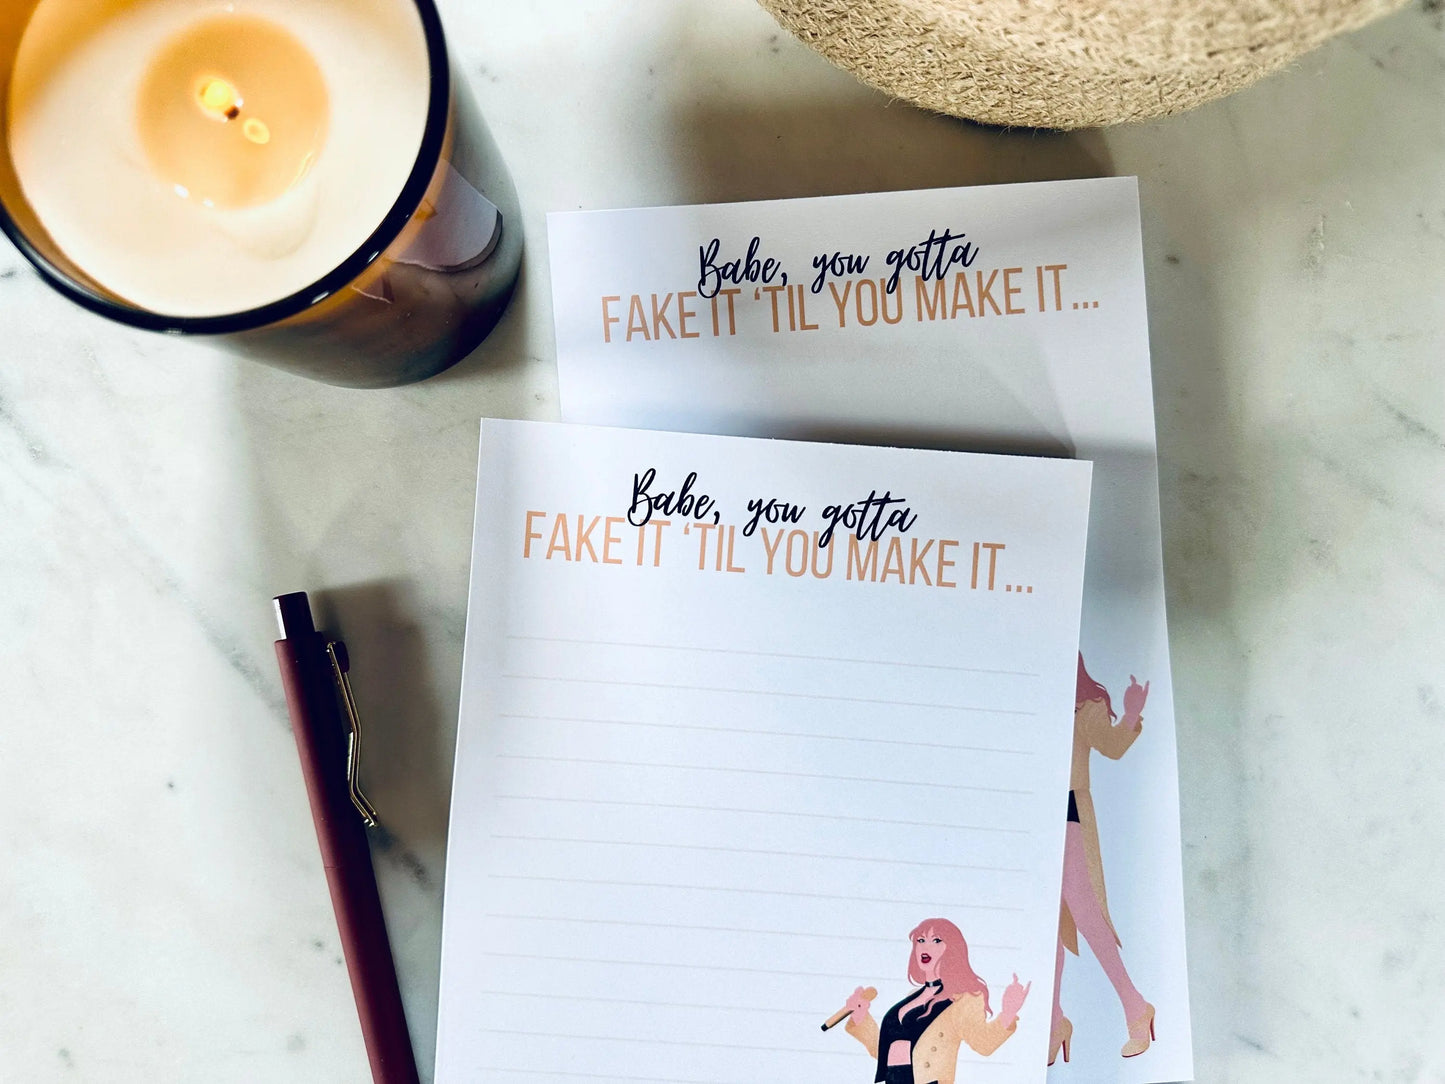 Babe, you gotta
FAKE IT ‘TIL YOU MAKE IT...
Babe, you gotta
FAKE IT ‘TIL YOU MAKE IT...